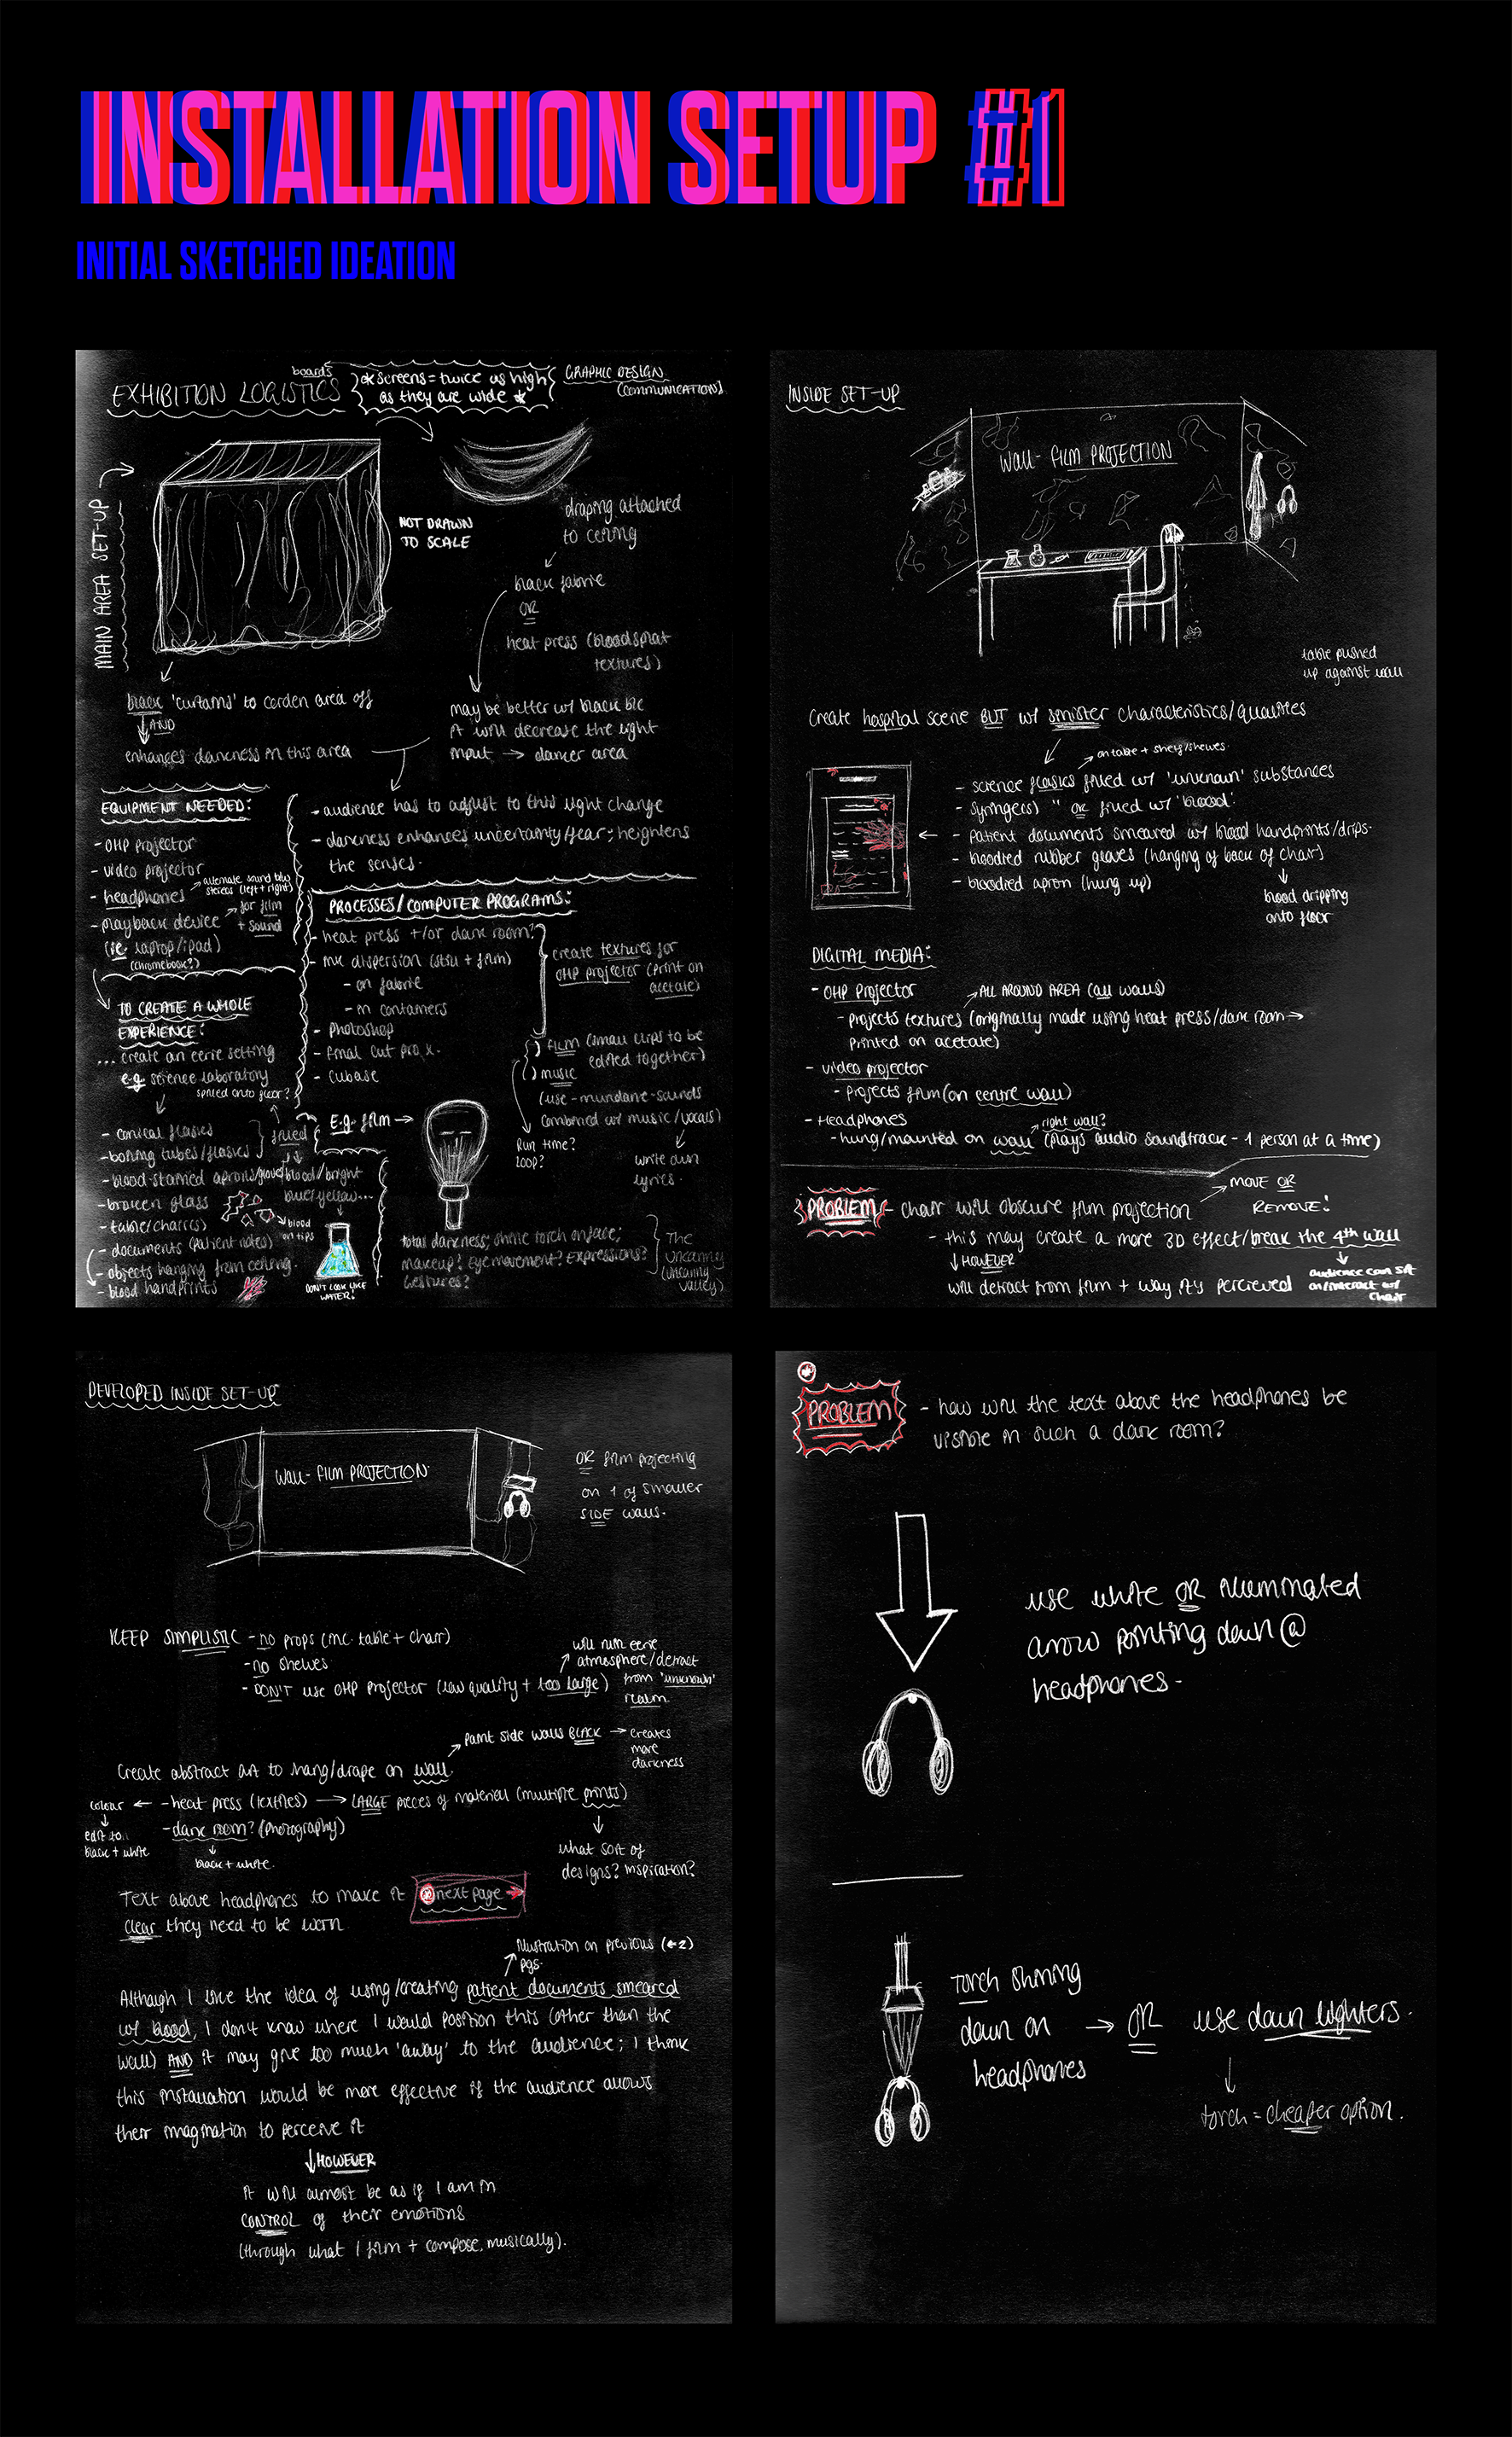 INSTALLATION SETUP #1
INITIAL SKETCHED IDEATION
EXHIBITION LOGISTICS
boards
* screens = twice as high
as they are wide *
GRAPHIC DESIGN
(COMMUNICATION)
MAIN AREA SET-UP
NOT DRAWN
TO SCALE
draping attached
to ceiling
black fabric
OR
heat press (bloodsplat
textures)
black 'curtains' to corden area off
AND
enhances darkness in this area
may be better w/ black b/c
it will decrease the light
input → dancer area
- audience has to adjust to this light change
- darkness enhances uncertainty/fear; heightens
the senses.
EQUIPMENT NEEDED:
- OHP projector
- video projector
- headphones
alternate sound b/w
stereos (left + right)
- playback device
for film
+ sound
(ie. laptop/ipad)
(chromebook?)
TO CREATE A WHOLE
EXPERIENCE:
... create an eerie setting
e.g. science laboratory
spilled onto floor?
- conical flasks
- boiling tubes/flasks
filled
- blood-stained aprons/gloves
blood/bright
blue/yellow...
- broken glass
blood
on tips
- table/chair(s)
- documents (patient notes)
- objects hanging from ceiling.
- blood handprints
DON'T LOOK LIKE
WATER!
PROCESSES/COMPUTER PROGRAMS:
- heat press +/or dark room?
- ink dispersion (still + film)
- on fabric
- in containers
- photoshop
- final cut pro x.
- cubase
create textures for
OHP projector (print on
acetate)
film (small clips to be
edited together)
music
(use - mundane - sounds
combined w/ music/vocals)
Run time?
Loop?
write own
lyrics.
E.g. film →
total darkness; shine torch on face;
makeup? Eye movement? Expressions?
Gestures?
The
Uncanny
(uncanny
valley)
INSIDE SET-UP
WALL - FILM PROJECTION
table pushed
up against wall
Create hospital scene BUT w/ sinister characteristics/qualities
on table + shelf/shelves
- science flasks filled w/ 'unknown' substances
- syringe(s) " OR filled w/ 'blood'.
- patient documents smeared w/ blood handprints/drips.
- bloodied rubber gloves (hanging of back of chair)
- bloodied apron (hung up)
blood dripping
onto floor
DIGITAL MEDIA:
- OHP Projector
ALL AROUND AREA (all walls)
- projects textures (originally made using heat press/dark room →
printed on acetate)
- video projector
- projects film (on centre wall)
- Headphones
right wall?
- hung/mounted on wall (plays audio soundtrack - 1 person at a time)
PROBLEM - chair will obscure film projection
MOVE OR
REMOVE!
- this may create a more 3D effect/break the 4th wall
HOWEVER
audience can sit
on/interact w/
chair
will detract from film + way it's percieved
DEVELOPED INSIDE SET-UP
WALL - FILM PROJECTION
OR film projecting
on 1 of smaller
SIDE walls.
KEEP SIMPLISTIC - no props (inc. table + chair)
- no shelves
- DON'T use OHP projector (low quality + too large)
will ruin eerie
atmosphere/detract
from 'unknown'
realm.
paint side walls BLACK → creates
more
darkness
Create abstract art to hang/drape on wall.
colour ← - heat press (textiles) → LARGE pieces of material (multiple prints)
edit to
black + white
- dark room? (photography)
black + white.
what sort of
designs? Inspiration?
Text above headphones to make it
clear they need to be worn
* next page →
Illustration on previous (←2)
pgs.
Although I like the idea of using/creating patient documents smeared
w/ blood, I don't know where I would position this (other than the
wall) AND it may give too much 'away' to the audience; I think
this installation would be more effective if the audience allows
their imagination to perceive it
HOWEVER
it will almost be as if I am in
CONTROL of their emotions
(through what I film + compose, musically).
*
PROBLEM
- how will the text above the headphones be
visible in such a dark room?
use white OR illuminated
arrow pointing down @
headphones.
TORCH shining
down on
headphones
→ OR
use down lighters.
torch = cheaper option.